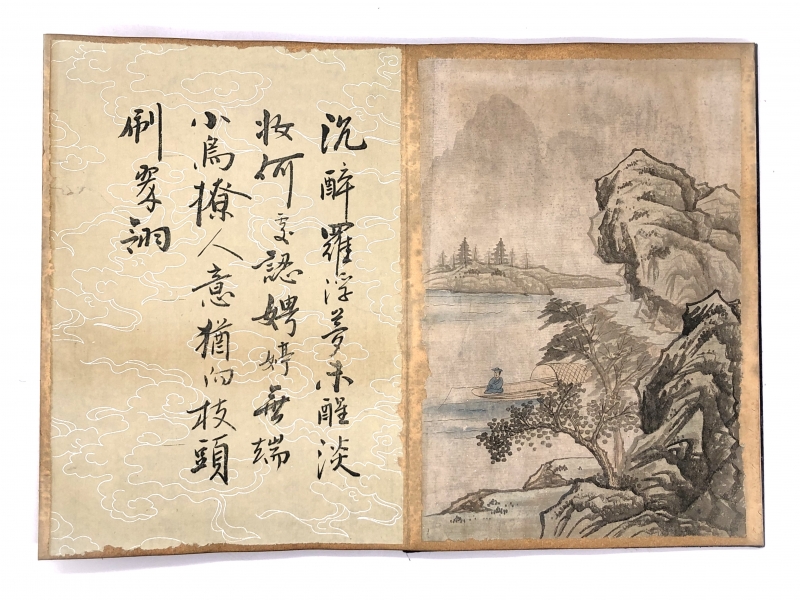 沉醉羅浮夢未醒淡
妝何處認娉婷無端
小鳥撩人意猶向枝頭
刷翠翎